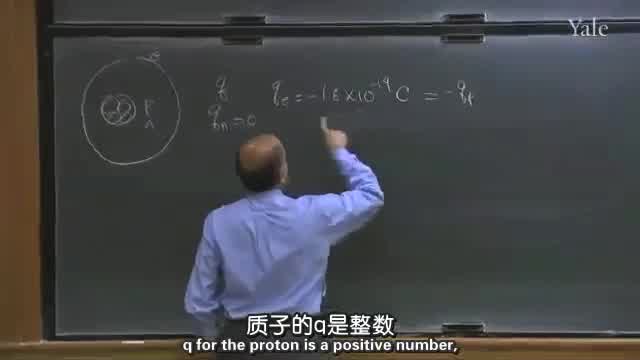 Yale
q
q_e = -1.6 × 10^-19 C = -q_p
q_n = 0
质子的q是整数
q for the proton is a positive number,